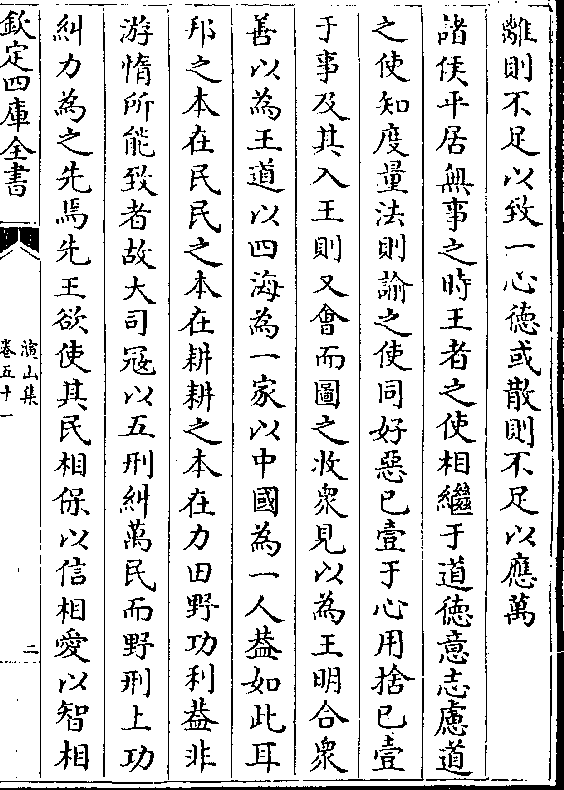 離則不足以致一心徳或散則不足以應萬
諸侯平居無事之時王者之使相繼于道徳意志慮道
之使知度量法則諭之使同好惡已壹于心用捨已壹
于事及其入王則又會而圖之收衆見以為王明合衆
善以為王道以四海為一家以中國為一人葢如此耳
邦之本在民民之本在耕耕之本在力田野功利葢非
游惰所能致者故大司冦以五刑糾萬民而野刑上功
糾力為之先焉先王欲使其民相保以信相愛以智相
欽定四庫全書
演山集
卷五十一
二